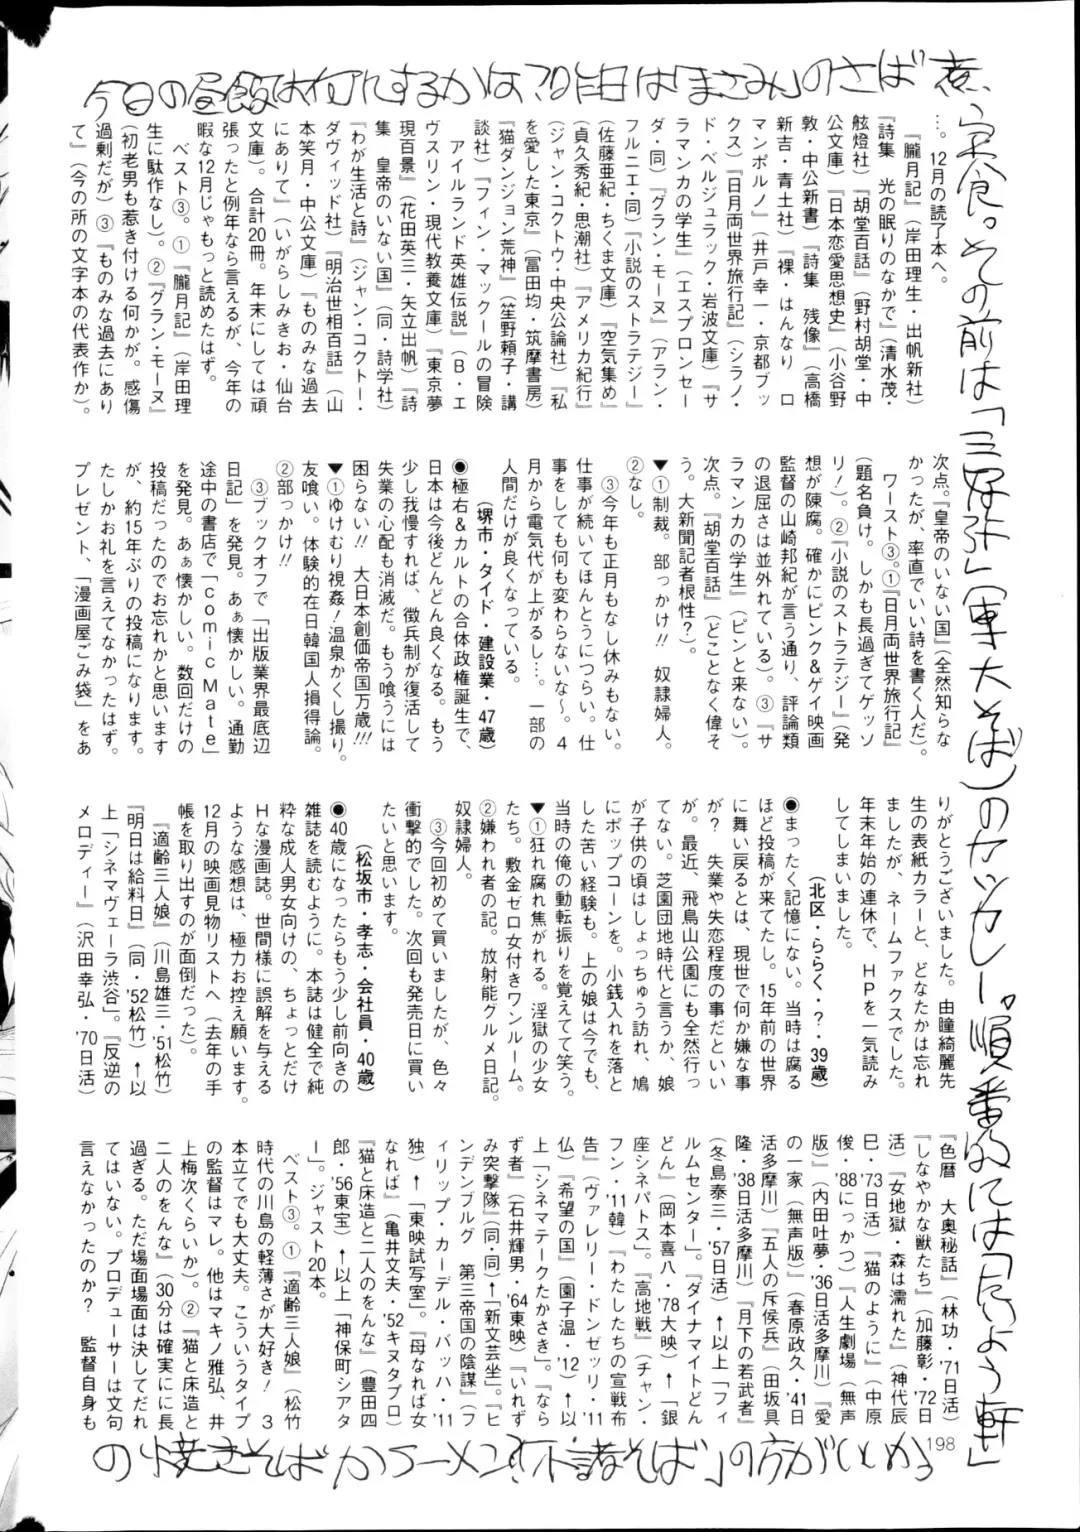 今日の昼飯は何にするかな?昨日は「まさみ」のさば煮
定食。その前は「三好弥」(専大そば)のカツカレー。順番的には「居よう軒」
の焼きそばかラーメン?「不諸そば」の方がいいかっ
…。12月の読了本へ。
『朧月記』(岸田理生・出帆新社)
『詩集 光の眠りのなかで』(清水茂・
舷燈社)『胡堂百話』(野村胡堂・中
公文庫)『日本恋愛思想史』(小谷野
敦・中公新書)『詩集 残像』(高橋
新吉・青土社)『裸・はんなり ロ
マンポルノ』(井戸幸一・京都ブッ
クス)『日月両世界旅行記』(シラノ・
ド・ベルジュラック・岩波文庫)『サ
ラマンカの学生』(エスプロンセー
ダ・同)『グラン・モーヌ』(アラン・
フルニエ・同)『小説のストラテジー』
(佐藤亜紀・ちくま文庫)『空気集め』
(貞久秀紀・思潮社)『アメリカ紀行』
(ジャン・コクトウ・中央公論社)『私
を愛した東京』(冨田均・筑摩書房)
『猫ダンジョン荒神』(笙野頼子・講
談社)『フィン・マックールの冒険
アイルランド英雄伝説』(B・エ
ヴスリン・現代教養文庫)『東京夢
現百景』(花田英三・矢立出帆)『詩
集 皇帝のいない国』(同・詩学社)
『わが生活と詩』(ジャン・コクトー・
ダヴィッド社)『明治世相百話』(山
本笑月・中公文庫)『ものみな過去
にありて』(いがらしみきお・仙台
文庫)。合計20冊。年末にしては頑
張ったと例年なら言えるが、今年の
暇な12月じゃもっと読めたはず。
ベスト③。①『朧月記』(岸田理
生に駄作なし)。②『グラン・モーヌ』
(初老男も惹き付ける何かが。感傷
過剰だが)③『ものみな過去にあり
て』(今の所の文字本の代表作か)。
次点。『皇帝のいない国』(全然知らな
かったが、率直でいい詩を書く人だ)。
ワースト③。①『日月両世界旅行記』
(題名負け。しかも長過ぎてゲッソ
リ!)。②『小説のストラテジー』(発
想が陳腐。確かにピンク&ゲイ映画
監督の山崎邦紀が言う通り、評論類
の退屈さは並外れている)。③『サ
ラマンカの学生』(ピンと来ない)。
次点。『胡堂百話』(どことなく偉そ
う。大新聞記者根性?)。
▼①制裁。部っかけ!! 奴隷婦人。
②なし。
③今年も正月もなし休みもない。
仕事が続いてほんとうにつらい。仕
事をしても何も変わらないな〜。4
月から電気代が上がるし…。一部の
人間だけが良くなっている。
(堺市・タイド・建設業・47歳)
●極右&カルトの合体政権誕生で、
日本は今後どんどん良くなる。もう
少し我慢すれば、徴兵制が復活して
失業の心配も消滅だ。もう喰うには
困らない!! 大日本創価帝国万歳!!!
▼①ゆけむり視姦!温泉かくし撮り。
友喰い。体験的在日韓国人損得論。
②部っかけ!!
③ブックオフで「出版業界最底辺
日記」を発見。あぁ懐かしい。通勤
途中の書店で「comic Mate」
を発見。あぁ懐かしい。数回だけの
投稿だったのでお忘れかと思います
が、約15年ぶりの投稿になります。
たしかお礼を言えてなかったはず。
プレゼント、「漫画屋ごみ袋」をあ
りがとうございました。由瞳綺麗先
生の表紙カラーと、どなたかは忘れ
ましたが、ネームファックスでした。
年末年始の連休で、HPを一気読み
してしまいました。
(北区・ららく・?・39歳)
●まったく記憶にない。当時は腐る
ほど投稿が来てたし。15年前の世界
に舞い戻るとは、現世で何か嫌な事
が? 失業や失恋程度の事だといい
が。最近、飛鳥山公園にも全然行っ
てない。芝園団地時代と言うか、娘
が子供の頃はしょっちゅう訪れ、鳩
にポップコーンを。小銭入れを落と
した苦い経験も。上の娘は今でも、
当時の俺の動転振りを覚えてて笑う。
▼①狂れ腐れ焦がれる。淫獄の少女
たち。敷金ゼロ女付きワンルーム。
②嫌われ者の記。放射能グルメ日記。
奴隷婦人。
③今回初めて買いましたが、色々
衝撃的でした。次回も発売日に買い
たいと思います。
(松坂市・孝志・会社員・40歳)
●40歳になったらもう少し前向きの
雑誌を読むように。本誌は健全で純
粋な成人男女向けの、ちょっとだけ
Hな漫画誌。世間様に誤解を与える
ような感想は、極力お控え願います。
12月の映画見物リストへ(去年の手
帳を取り出すのが面倒だった)。
『適齢三人娘』(川島雄三・'51松竹)
『明日は給料日』(同・'52松竹)↑以
上「シネマヴェーラ渋谷」。『反逆の
メロディー』(沢田幸弘・'70日活)
『色暦 大奥秘話』(林功・'71日活)
『しなやかな獣たち』(加藤彰・'72日
活)『女地獄・森は濡れた』(神代辰
巳・'73日活)『猫のように』(中原
俊・'88にっかつ)『人生劇場(無声
版)』(内田吐夢・'36日活多摩川)『愛
の一家(無声版)』(春原政久・'41日
活多摩川)『五人の斥候兵』(田坂具
隆・'38日活多摩川)『月下の若武者』
(冬島泰三・'57日活)↑以上「フィ
ルムセンター」。『ダイナマイトどん
どん』(岡本喜八・'78大映)↑「銀
座シネパトス」。『高地戦』(チャン・
フン・'11韓)『わたしたちの宣戦布
告』(ヴァレリー・ドンゼッリ・'11
仏)『希望の国』(園子温・'12)↑以
上「シネマテークたかさき」。『なら
ず者』(石井輝男・'64東映)『いれず
み突撃隊』(同・同)↑「新文芸坐」。『ヒ
ンデンブルグ 第三帝国の陰謀』(フ
ィリップ・カーデル・バッハ・'11
独)↑「東映試写室」。『母なれば女
なれば』(亀井文夫・'52キヌタプロ)
『猫と床造と二人のをんな』(豊田四
郎・'56東宝)↑以上「神保町シアタ
ー」。ジャスト20本。
ベスト③。①『適齢三人娘』(松竹
時代の川島の軽薄さが大好き! 3
本立てでも大丈夫。こういうタイプ
の監督はマレ。他はマキノ雅弘、井
上梅次くらいか)。②『猫と床造と
二人のをんな』(30分は確実に長
過ぎる。ただ場面場面は決してだれ
てはいない。プロデューサーは文句
言えなかったのか? 監督自身も
198